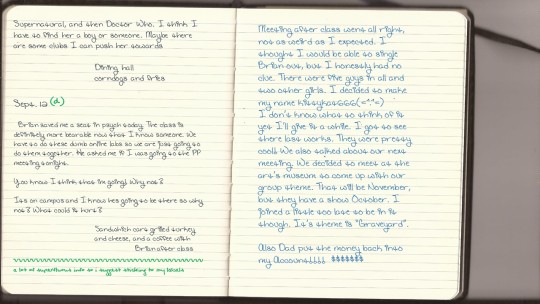 Supernatural, and then Doctor Who. I think I
have to find her a boy or someone. Maybe there
are some clubs I can push her towards
Dining hall
corndogs and fries
Sept. 12 (d)
Brian saved me a seat in psych today. The class is
definitely more bearable now that I know someone. We
have to do these dumb online labs so we are just going to
do them together. He asked me if I was going to the PP
meeting tonight.
You know I think that I'm going! Why not?
Its on campus and I know hes going to be there so why
not? What could it hurt?
Sandwhich cart grilled turkey
and cheese, and a coffee with
Brian after class
a lot of superfluous info so i suggest sticking to my labels
Meeting after class went all right,
not as weird as I expected. I
thought I would be able to single
Brian out, but I honestly had no
clue. There were five guys in all and
two other girls. I decided to make
my name kittykat666(=^.^=)
I don't know what to think of it
yet I'll give it a while. I got to see
there last works. They were pretty
cool! We also talked about our next
meeting. We decided to meet at the
art's museum to come up with our
group theme. That will be November,
but they have a show October. I
joined a little too late to be in it
though. It's theme is "Graveyard".
Also Dad put the money back into
my Account!!!! $$$$$$$